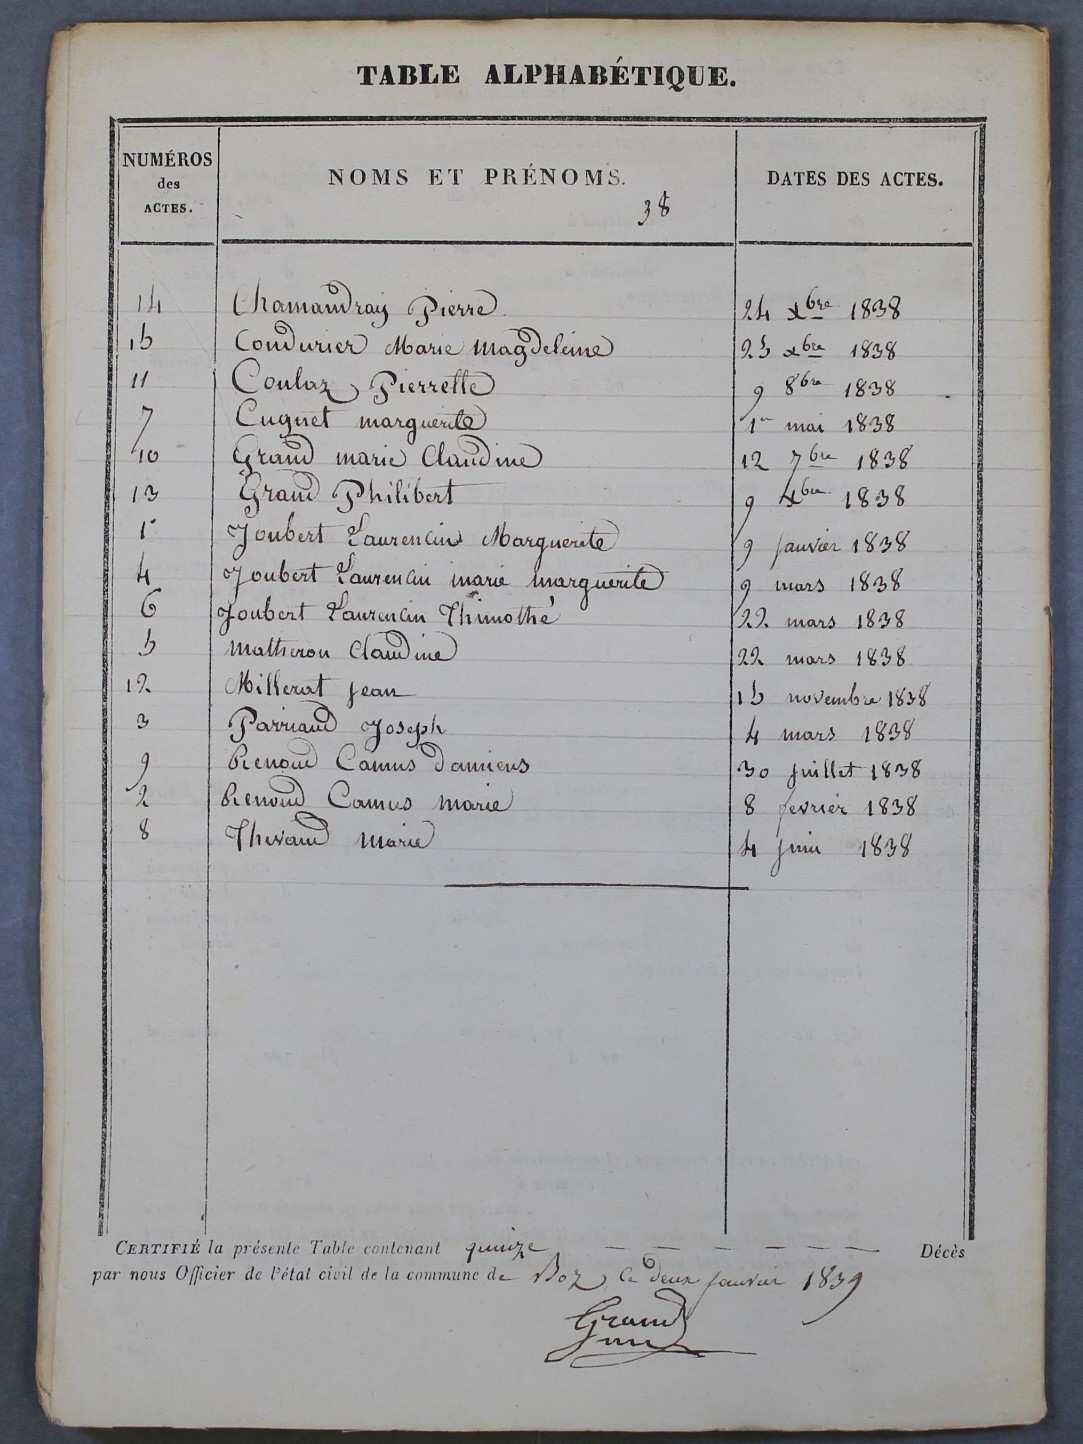 TABLE ALPHABÉTIQUE.
NUMÉROS des ACTES. NOMS ET PRÉNOMS. DATES DES ACTES.
38
14 Chamandray Pierre 24 xbre 1838
15 Condurier Marie Magdeleine 25 xbre 1838
11 Coulaz Pierrette 9 8bre 1838
7 Cugnet marguerite 1er mai 1838
10 Grand marie Claudine 12 7bre 1838
13 Grand Philibert 9 xbre 1838
1er Joubert Laurencin Marguerite 9 janvier 1838
4 Joubert Laurencin marie marguerite 9 mars 1838
6 Joubert Laurencin Thimothé 22 mars 1838
5 Matheron Claudine 22 mars 1838
12 Millerat jean 15 novembre 1838
3 Parriaud Joseph 4 mars 1838
9 Renoud Camus damiens 30 juillet 1838
2 Renoud Camus marie 8 fevrier 1838
8 Thevaud marie 4 juin 1838
CERTIFIÉ la présente Table contenant quinze — — — — — — Décès
par nous Officier de l'état civil de la commune de Boz, le deux janvier 1839
Grand